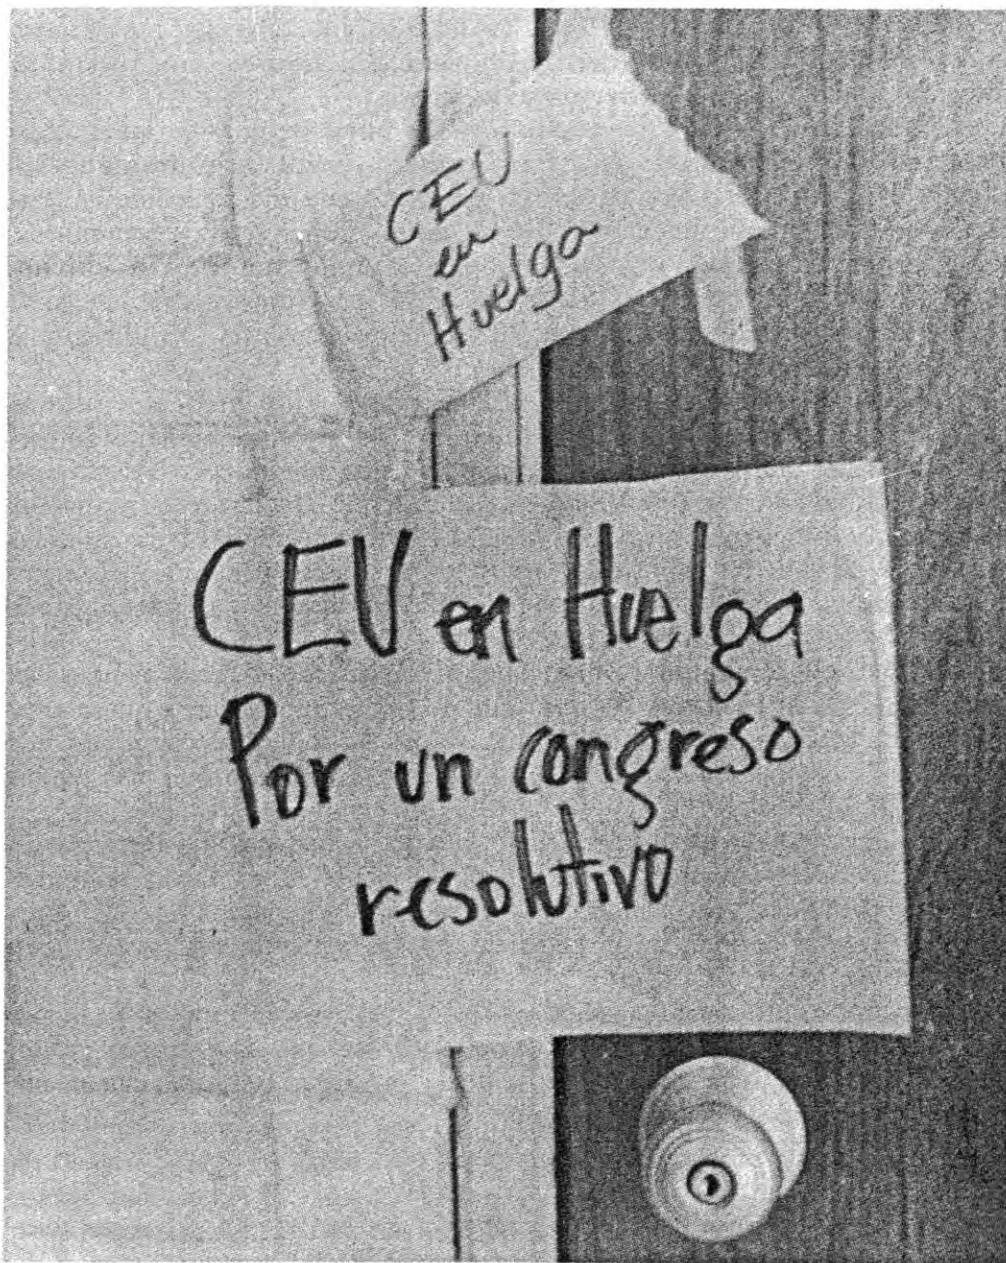 CEU
en
Huelga
CEU en Huelga
Por un congreso
resolutivo